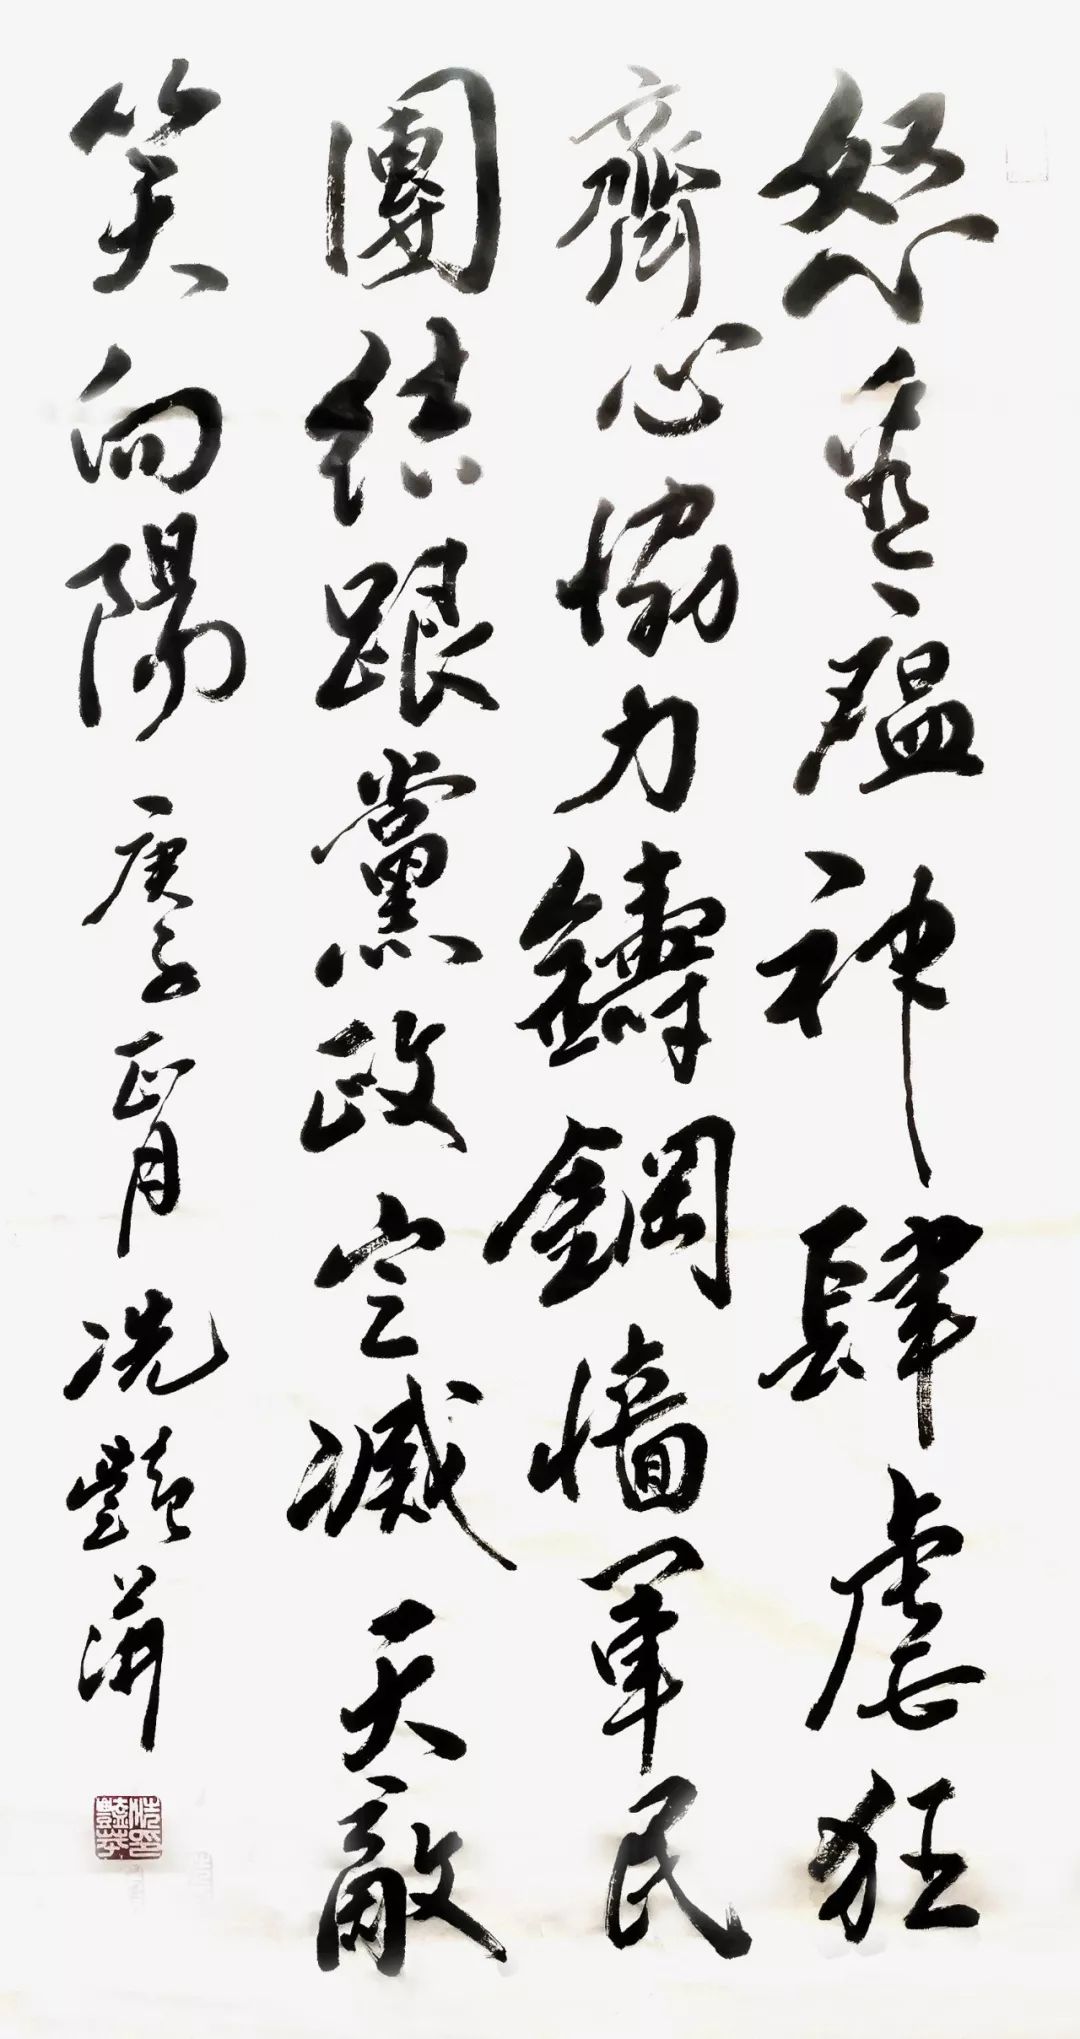 怒瘟神肆虐狂
齊心協力鑄鋼墻軍民
團結跟黨政定滅天敵
笑向陽 庚子正月 冼豔萍